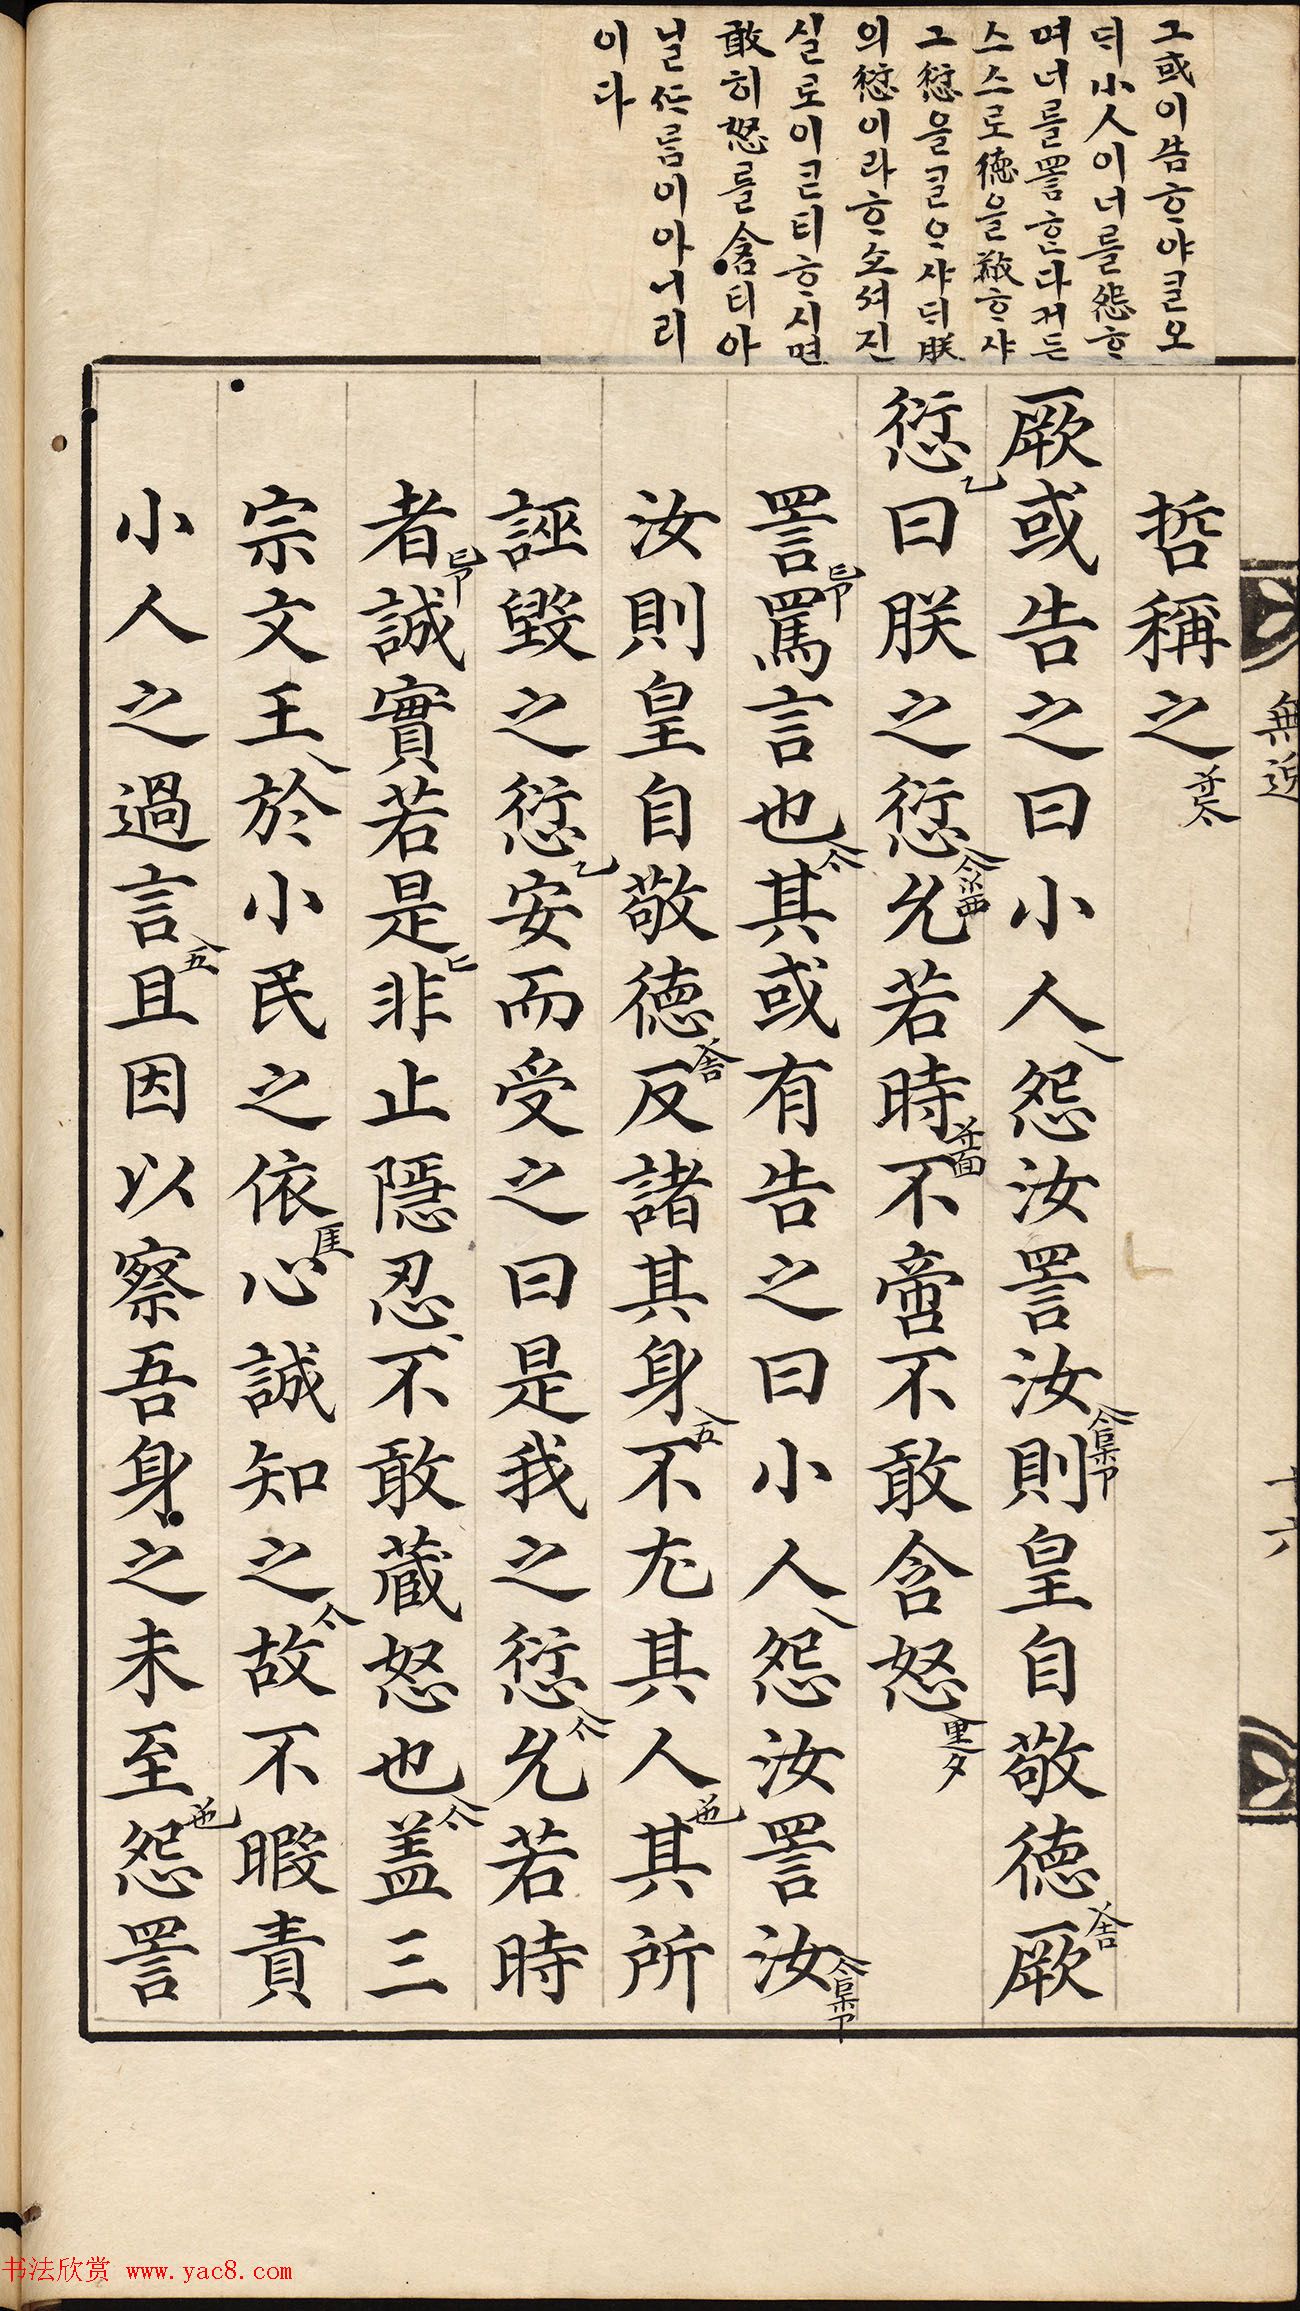 그或이告ᄒᆞ야ᄀᆞᆯ오
ᄃᆡ小人이너를怨ᄒᆞ
며너를詈ᄒᆞᆫ다거든
스스로德을敬ᄒᆞ샤
그愆을ᄀᆞᆯᄋᆞ샤ᄃᆡ朕
의愆이라ᄒᆞ쇼셔진
실로이ᄀᆞᆮ티ᄒᆞ시면
敢히怒를含티아
닐ᄯᆞ름이아니리
이다
哲稱之
厥或告之曰小人怨汝詈汝則皇自敬德厥
愆乙曰朕之愆允若時不啻不敢含怒
詈罵言也其或有告之曰小人怨汝詈汝
汝則皇自敬德反諸其身不尤其人其所
誣毀之愆乙安而受之曰是我之愆允若時
者誠實若是非止隱忍不敢藏怒也盖三
宗文王於小民之依心誠知之故不暇責
小人之過言且因以察吾身之未至怨詈
無逸
十六
书法欣赏 www.yac8.com